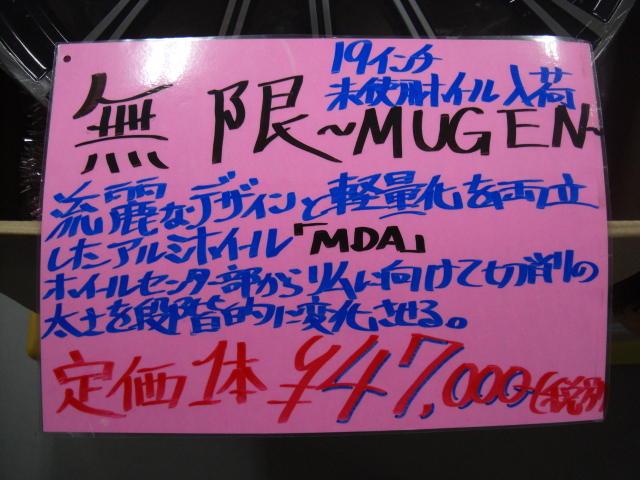 19インチ
未使用ホイル入荷
無限~MUGEN~
流麗なデザインと軽量化を両立
したアルミホイール「MDA」
ホイルセンター部からリムに向けて切削の
太さを段階的に変化させる。
定価1本¥47,000-(税別)